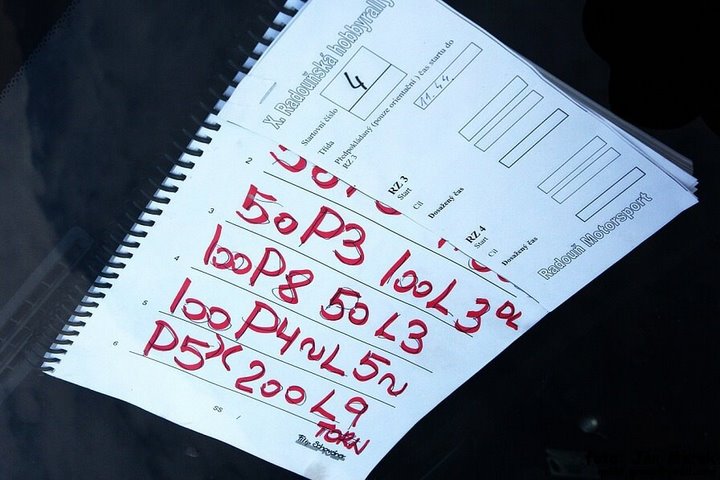 X. Radouňská hobbyrally
Startovní číslo 4
Třída
Předpokládaný (pouze orientační) čas startu do
RZ 3 11.44
RZ.3
Start
Cíl
Dosažený čas
RZ.4
Start
Cíl
Dosažený čas
Radouň Motorsport
2
3 50 P3 100 L3
4 100 P8 50 L3
5 100 P4 ~ L5 ~
6 P5 X 200 L9
SS /